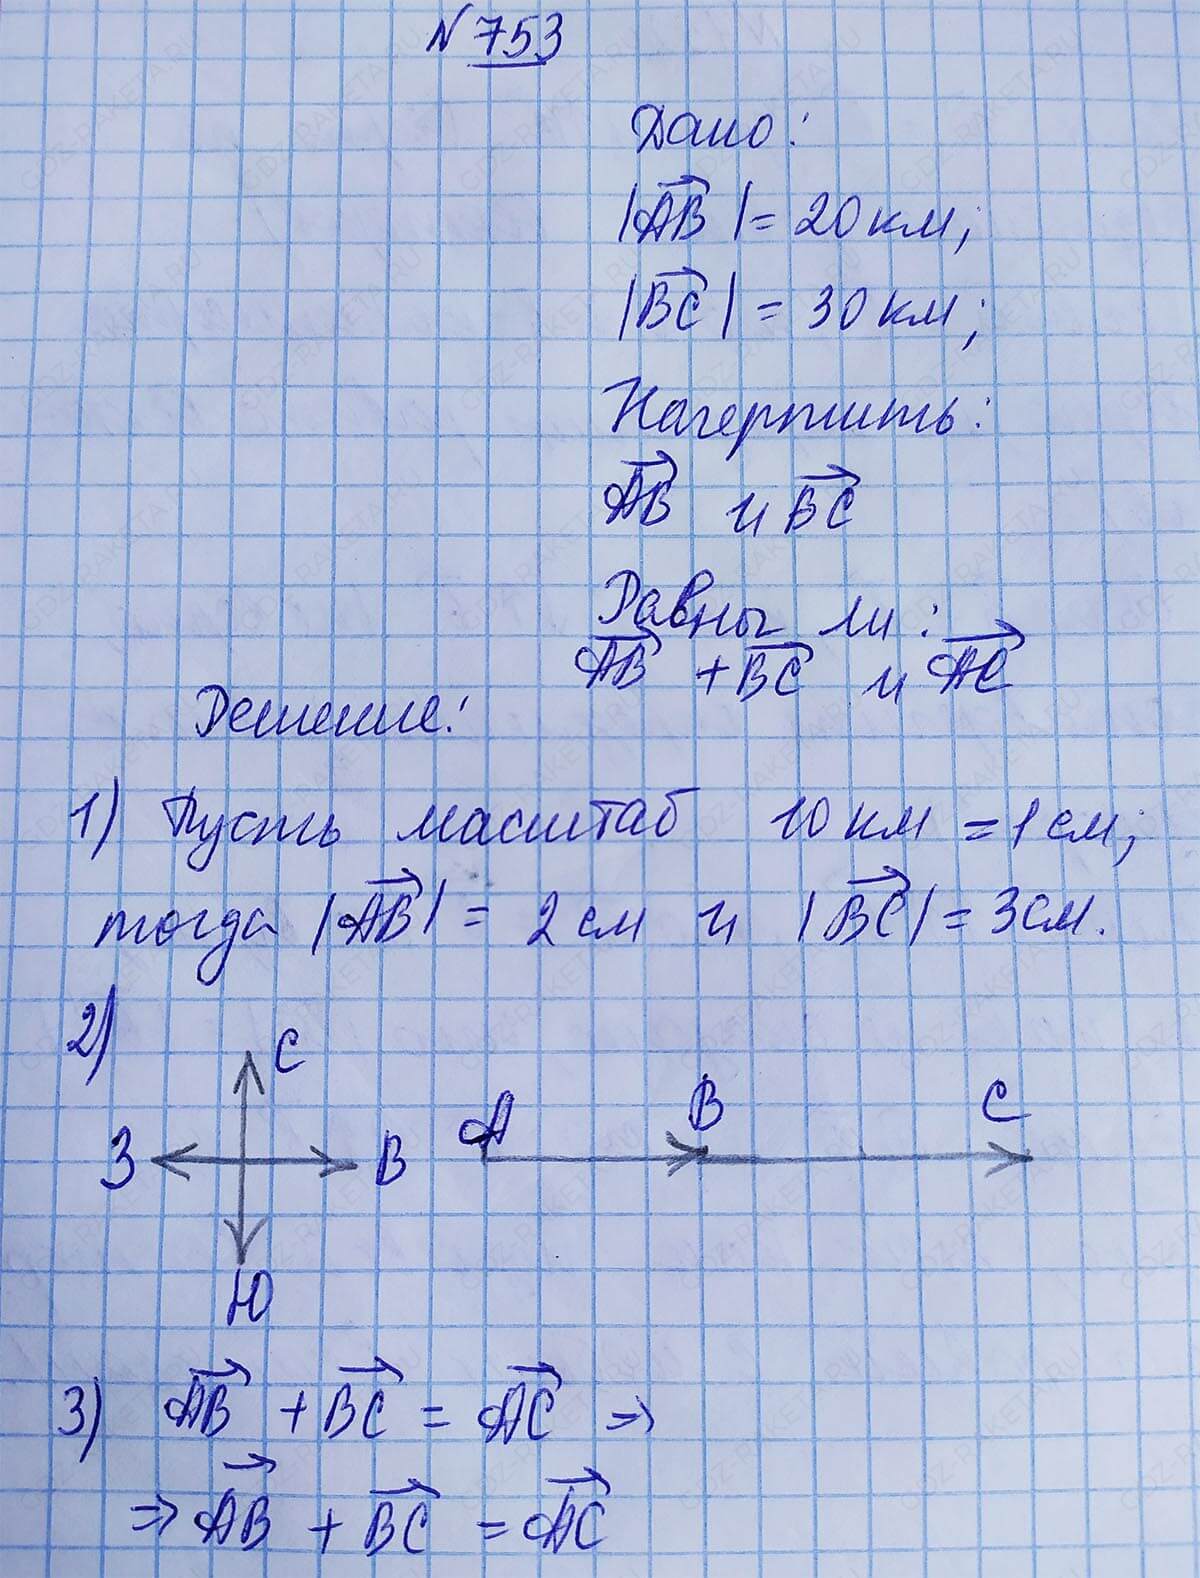 N 753
Дано:
|AB| = 20 км;
|BC| = 30 км;
Начертить:
AB и BC
Равны ли:
AB + BC и AC
Решение:
1) Пусть масштаб 10 км = 1 см;
тогда |AB| = 2 см и |BC| = 3 см.
2)
С
З В A B C
Ю
3) AB + BC = AC ⇒
⇒ AB + BC = AC